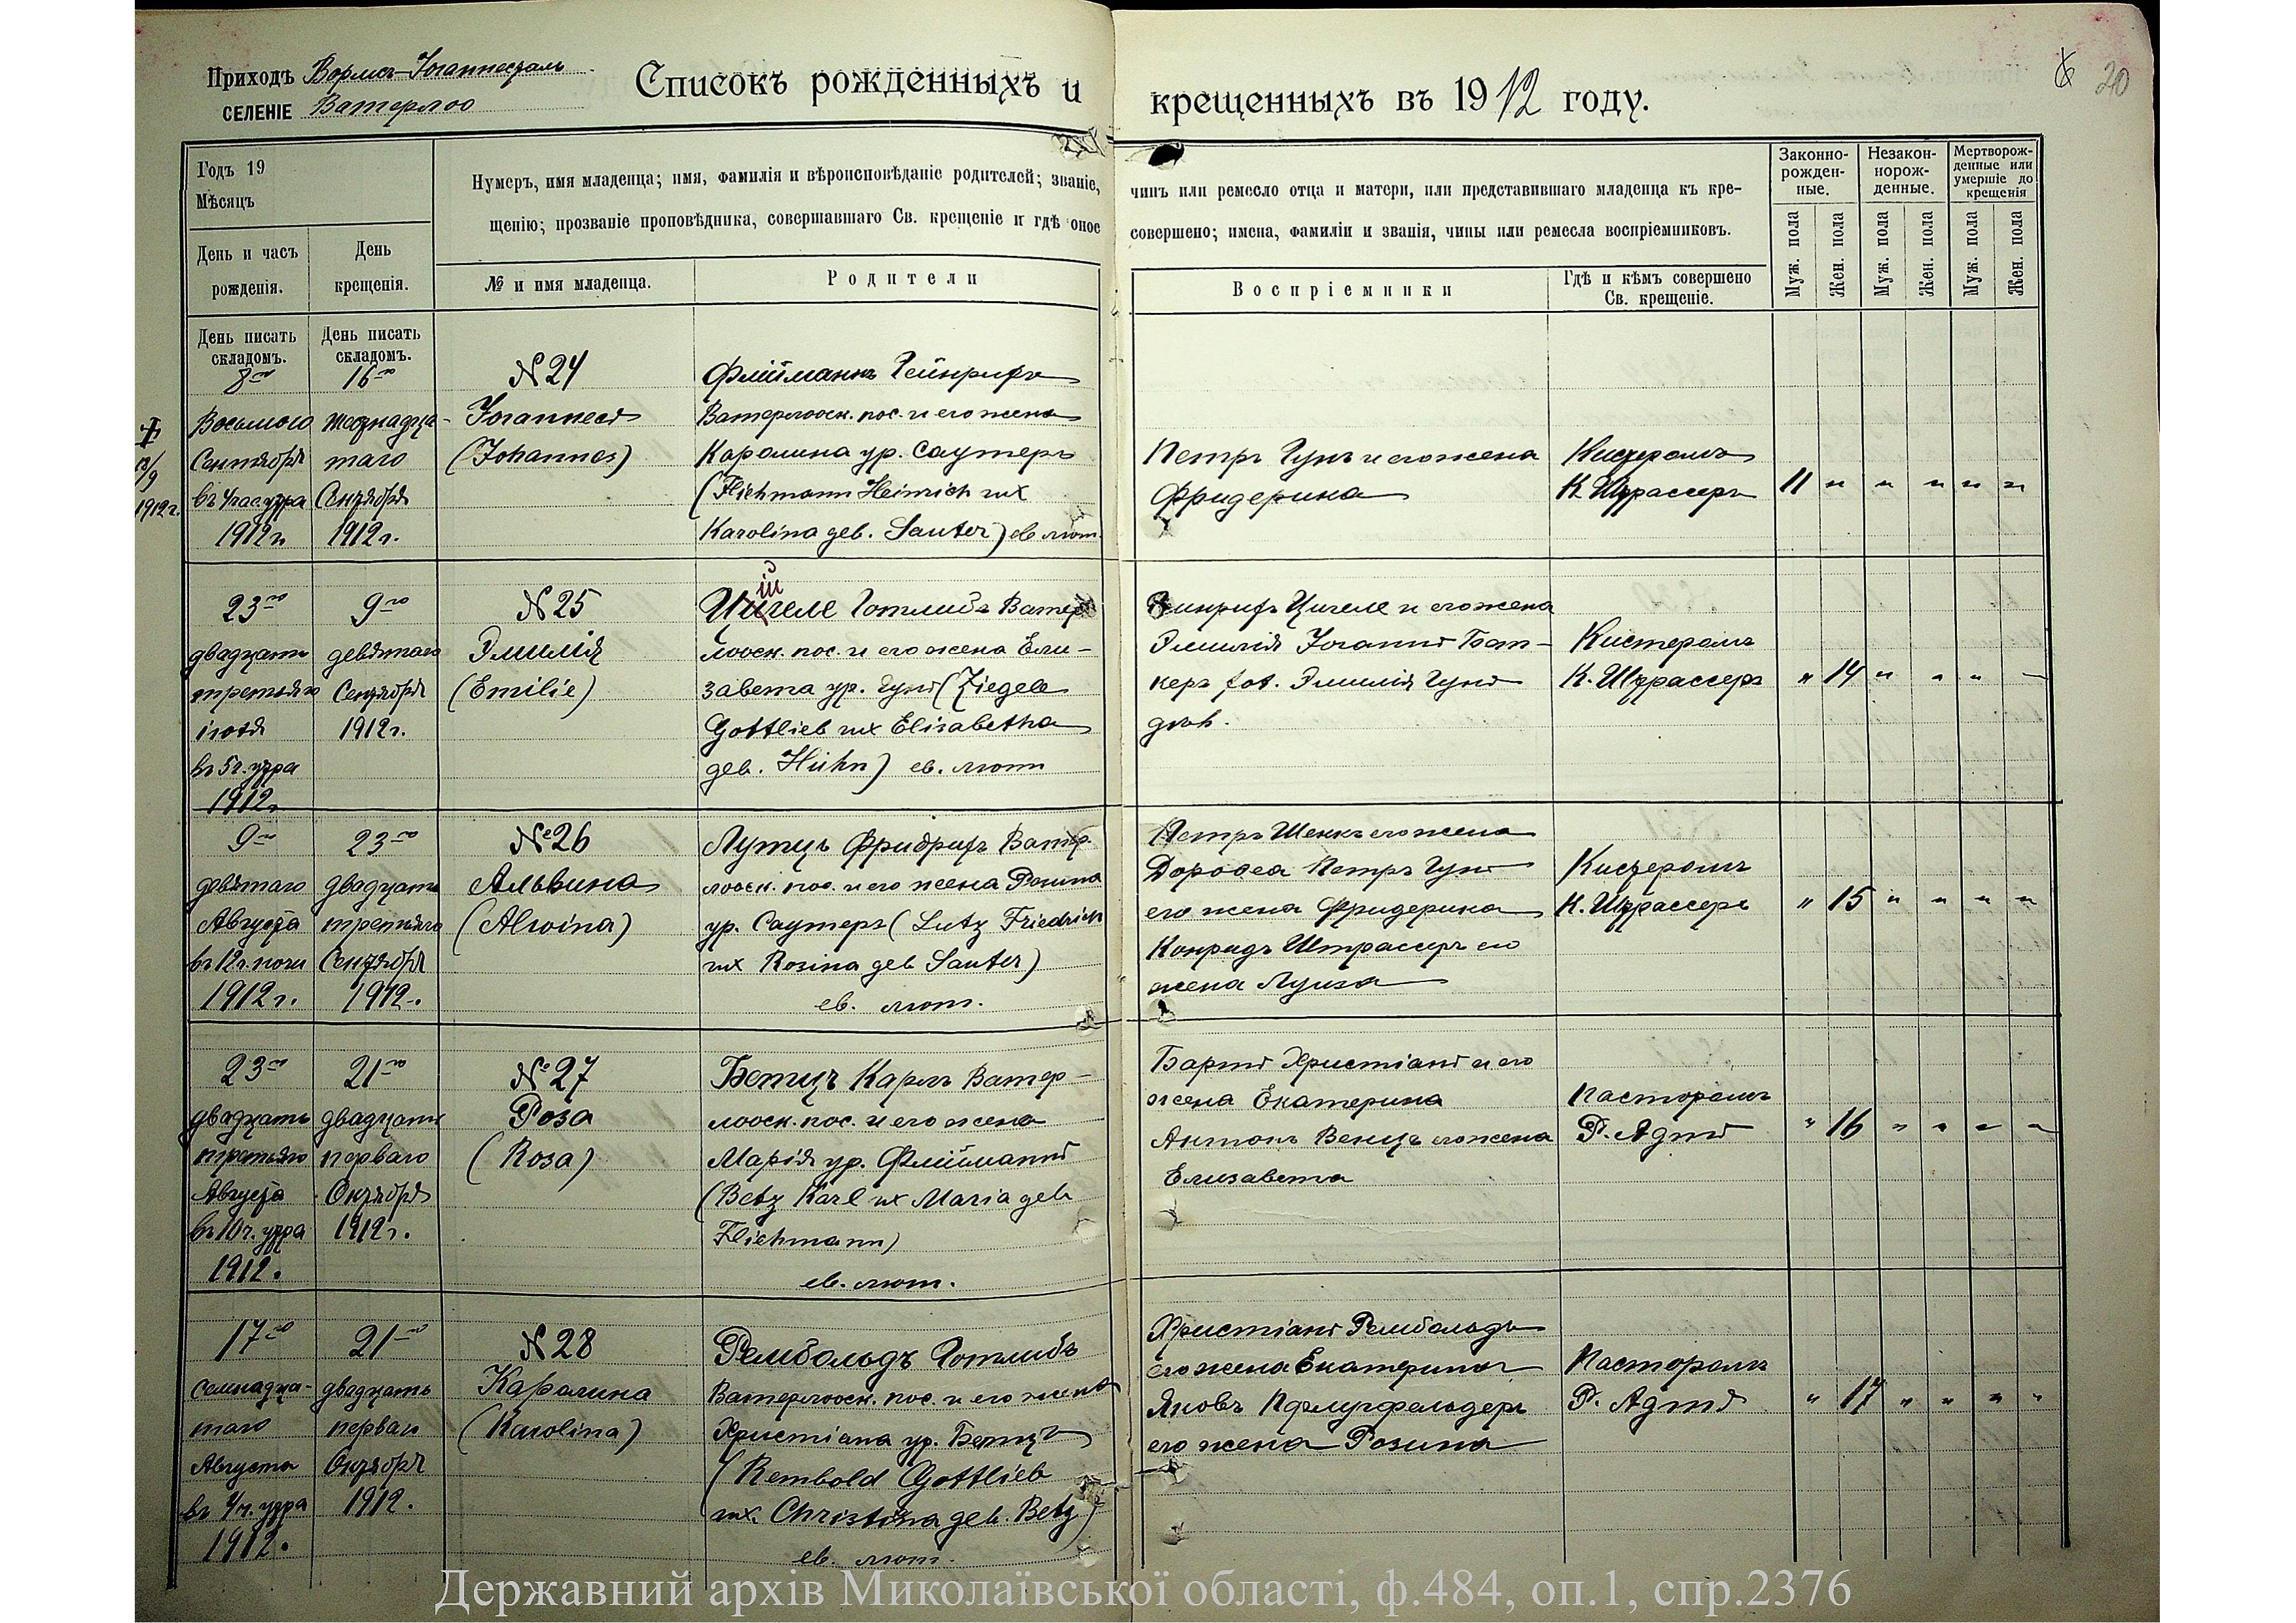 Приходъ Вормсъ-Іоганнесталь
СЕЛЕНІЕ Ватерлоо
Списокъ рожденныхъ и крещенныхъ въ 1912 году.
20
Годъ 19
Мѣсяцъ
Нумеръ, имя младенца; имя, фамилія и вѣроисповѣданіе родителей; званіе, чинъ или ремесло отца и матери, или представившаго младенца къ кре-
щенію; прозваніе проповѣдника, совершавшаго Св. крещеніе и гдѣ оное совершено; имена, фамиліи и званія, чины или ремесла воспріемниковъ.
Законно-
рожден-
ные.
Незакон-
норож-
денные.
Мертворож-
денные или
умершіе до
крещенія
День и часъ
рожденія.
День
крещенія.
№ и имя младенца.
Родители
Воспріемники
Гдѣ и кѣмъ совершено
Св. крещеніе.
Муж. пола
Жен. пола
Муж. пола
Жен. пола
Муж. пола
Жен. пола
День писать
складомъ.
День писать
складомъ.
8го
Восьмого
Сентября
въ 4 час утра
1912 г.
12/9
1912 г.
16го
шестнадца-
таго
Сентября
1912 г.
№ 24
Іоганнесъ
(Johannes)
Флійманнъ Гейнрихъ
Ватерлооск. пос. и его жена
Каролина ур. Саутеръ
(Fliehmann Heinrich ux
Karolina geb. Sauter) ев. лют.
Петръ Гунъ и его жена
Фридерика
Кистеромъ
К. Штрассеръ
11 " " " " "
23го
двадцать
третьяго
іюля
въ 5 ч. утра
1912 г.
9го
девятаго
Сентября
1912 г.
№ 25
Эмилія
(Emilie)
Цигеле Готлибъ Ватер
лооск. пос. и его жена Ели-
завета ур. Гунъ (Ziegele
Gottlieb ux Elisabetha
geb. Hühn) ев. лют
Гинрихъ Цигеле и его жена
Эмилія Іоганнъ Бан-
керъ Эмилія Гунъ
Кистеромъ
К. Штрассеръ
" 14 " " " "
9го
девятаго
Августа
въ 12 ч. ночи
1912 г.
23го
двадцать
третьяго
Сентября
1912.
№ 26
Альвина
(Alwina)
Лутцъ Фридрихъ Ватер
лооск. пос. и его жена Розина
ур. Саутеръ (Lutz Friedrich
ux Rosina geb Sauter)
ев. лют.
Петръ Шенкъ его жена
Доровеа Петръ Гунъ
его жена Фридерика
Конрадъ Штрассеръ его
жена Луиза
Кистеромъ
К. Штрассеръ
" 15 " " " "
23го
двадцать
третьяго
Августа
въ 10 ч. утра
1912.
21го
двадцать
перваго
Октября
1912 г.
№ 27
Роза
(Roza)
Бетцъ Карлъ Ватер-
лооск. пос. и его жена
Марія ур. Флійманнъ
(Betz Karl ux Maria geb
Fliehmann)
ев. лют.
Бартъ Христіанъ и его
жена Екатерина
Антонъ Венцъ его жена
Елизавета
Пасторомъ
Р. Адтъ
" 16 " " " "
17го
семнадца-
таго
Августа
въ 4 ч. утра
1912.
21го
двадцать
перваго
Октября
1912.
№ 28
Каролина
(Karolina)
Рембольдъ Готлибъ
Ватерлооск. пос. и его жена
Христіана ур. Бетцъ
(Rembold Gottlieb
ux. Christina geb. Betz)
ев. лют.
Христіанъ Рембольдъ
его жена Екатерина
Яковъ Пфлугфельдеръ
его жена Розина
Пасторомъ
Р. Адтъ
" 17 " " " "
Державний архів Миколаївської області, ф.484, оп.1, спр.2376